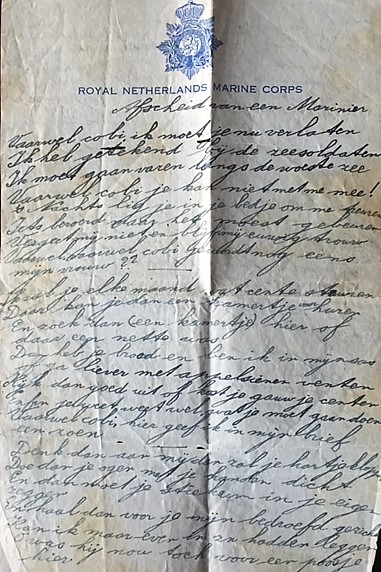 ROYAL NETHERLANDS MARINE CORPS
Afscheid van een Marinier
Vaarwel cobi ik moet je nu verlaten
Ik heb getekend bij de zeesoldaten
Ik moet gaan varen langs de woeste zee
Vaarwel cobi je kan niet met me mee!
lig je in je bedje om me
maar het moest gebeuren
Vergeet mij niet en blijf mij eeuwig trouw
vaarwel cobi eens
mijn vrouw ??
je elke maand wat centen sturen
Daar kun je dan een kamertje van huren
En zoek dan (een kamertje) hier of
daar een nette was
Dan heb je brood en ben ik in mijn sas
of ga liever met appelsienen venten
Kijk dan goed uit of kost je gauw je centen
je weet wel wat je moet gaan doen
Vaarwel cobi hier geef ik in mijn brief
een zoen
Denk dan aan mij dan zal je hartje
Doe dan je ogen dicht
En dan moet je in je eige
En haal dan voor je mijn bedroefd
Kan ik maar even in zn leggen
was hij nou toch voor een poosje
hier